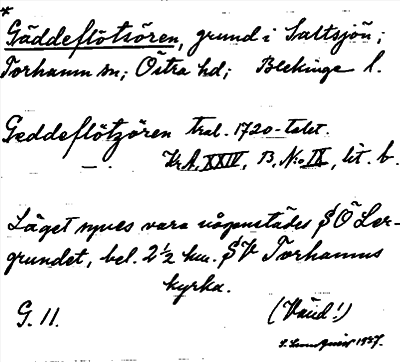 *
Gäddeflötsören, grund i Saltsjön;
Torhamn sn; Östra hd; Blekinge l.
Geddeflötzören tral. 1720-talet.
— . Kr.A. XXIV, B. No IX, lit. b.
Läget synes vara någonstädes SÖ Ler-
grundet, bel. 2½ km. SV Torhamns
kyrka.
G. 11. (Vänd!)
1937.